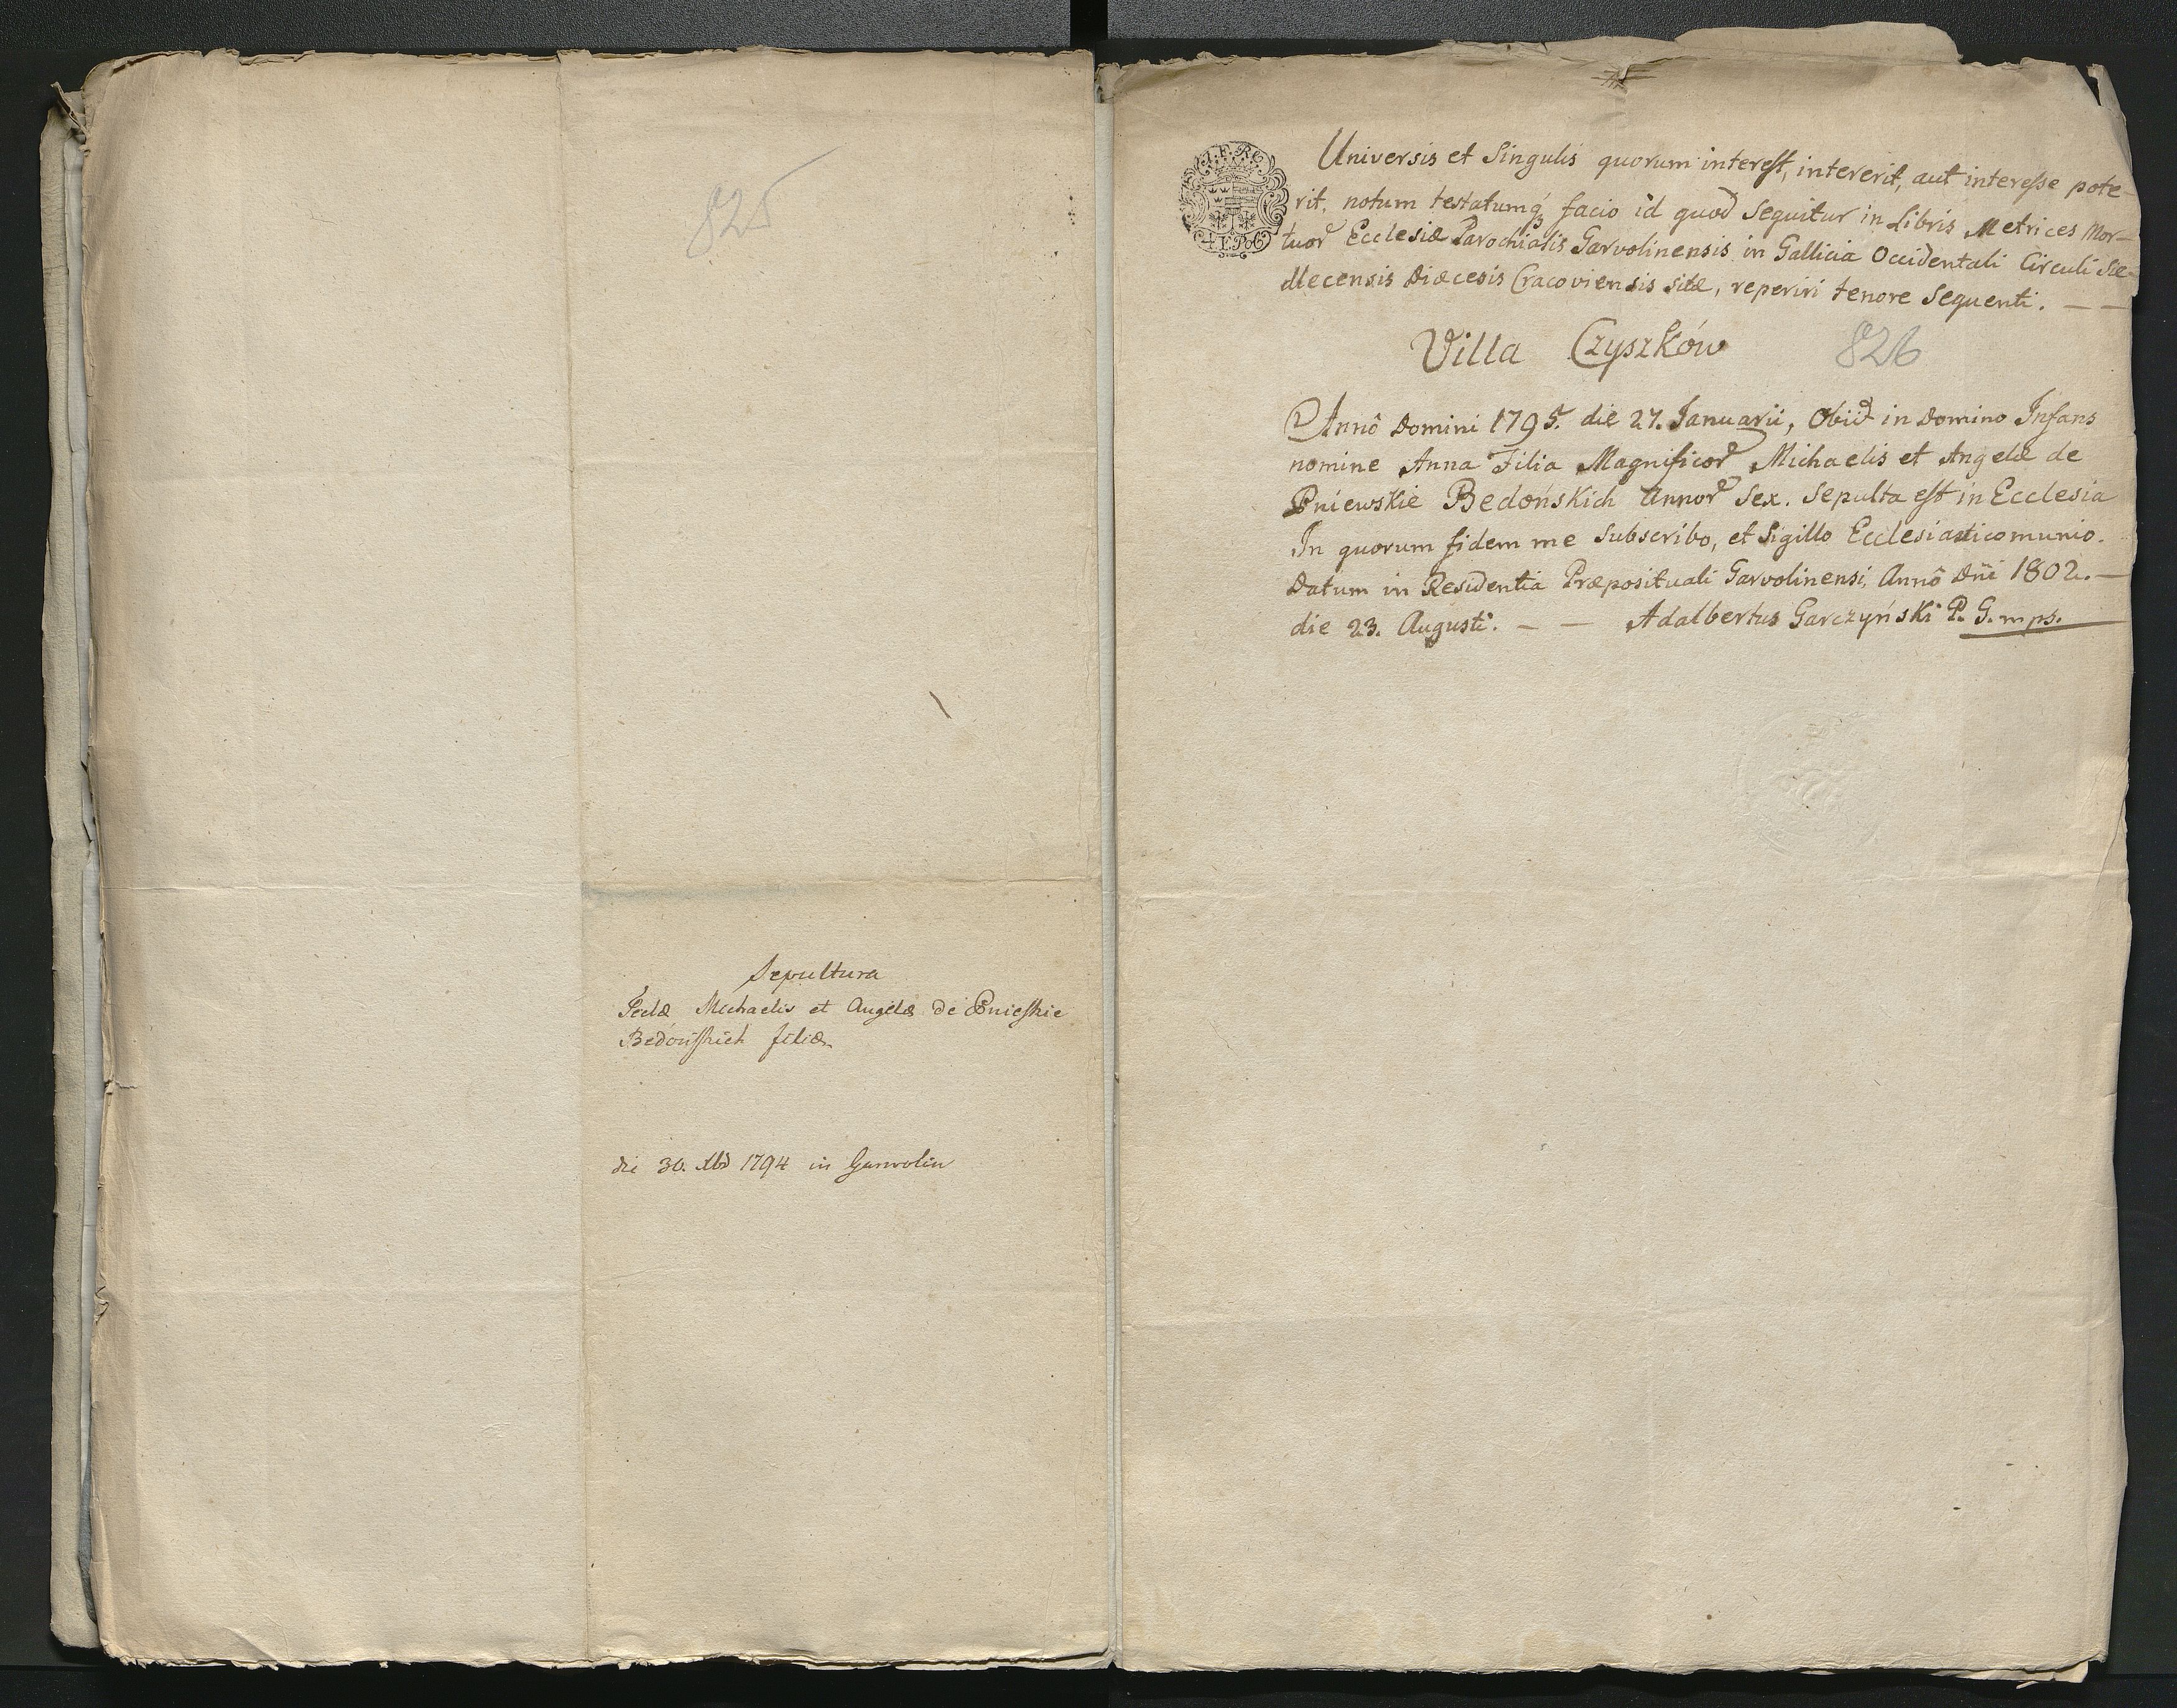 825
Sepultura
Teclæ Michaelis et Angelæ de Pnieskie
Bedońskich filiæ
die 30. Xbr 1794 in Garwolin
Universis et Singulis quorum interest, intererit, aut interesse pote-
rit, notum testatumq3 facio id quod Sequitur in Libris Metrices Mor-
tuor Ecclesiæ Parochialis Garvolinensis in Gallicia Occidentali Circuli Sie-
dlecensis Diæcesis Cracoviensis sitæ, reperiri tenore Sequenti. — —
Villa Czyszków
826
Annô Domini 1795. die 27. Januarii, Obiit in Domino Infans
nomine Anna Filia Magnificor Michaelis et Angelæ de
Pniewskie Bedońskich Annor Sex. Sepulta est in Ecclesia
In quorum fidem me Subscribo, et Sigillo Ecclesiastico munio.
Datum in Residentia Præposituali Garvolinensi, Annô Dñi 1802. —
die 23. Augusti. — — Adalbertus Garczyński P. G. mps.